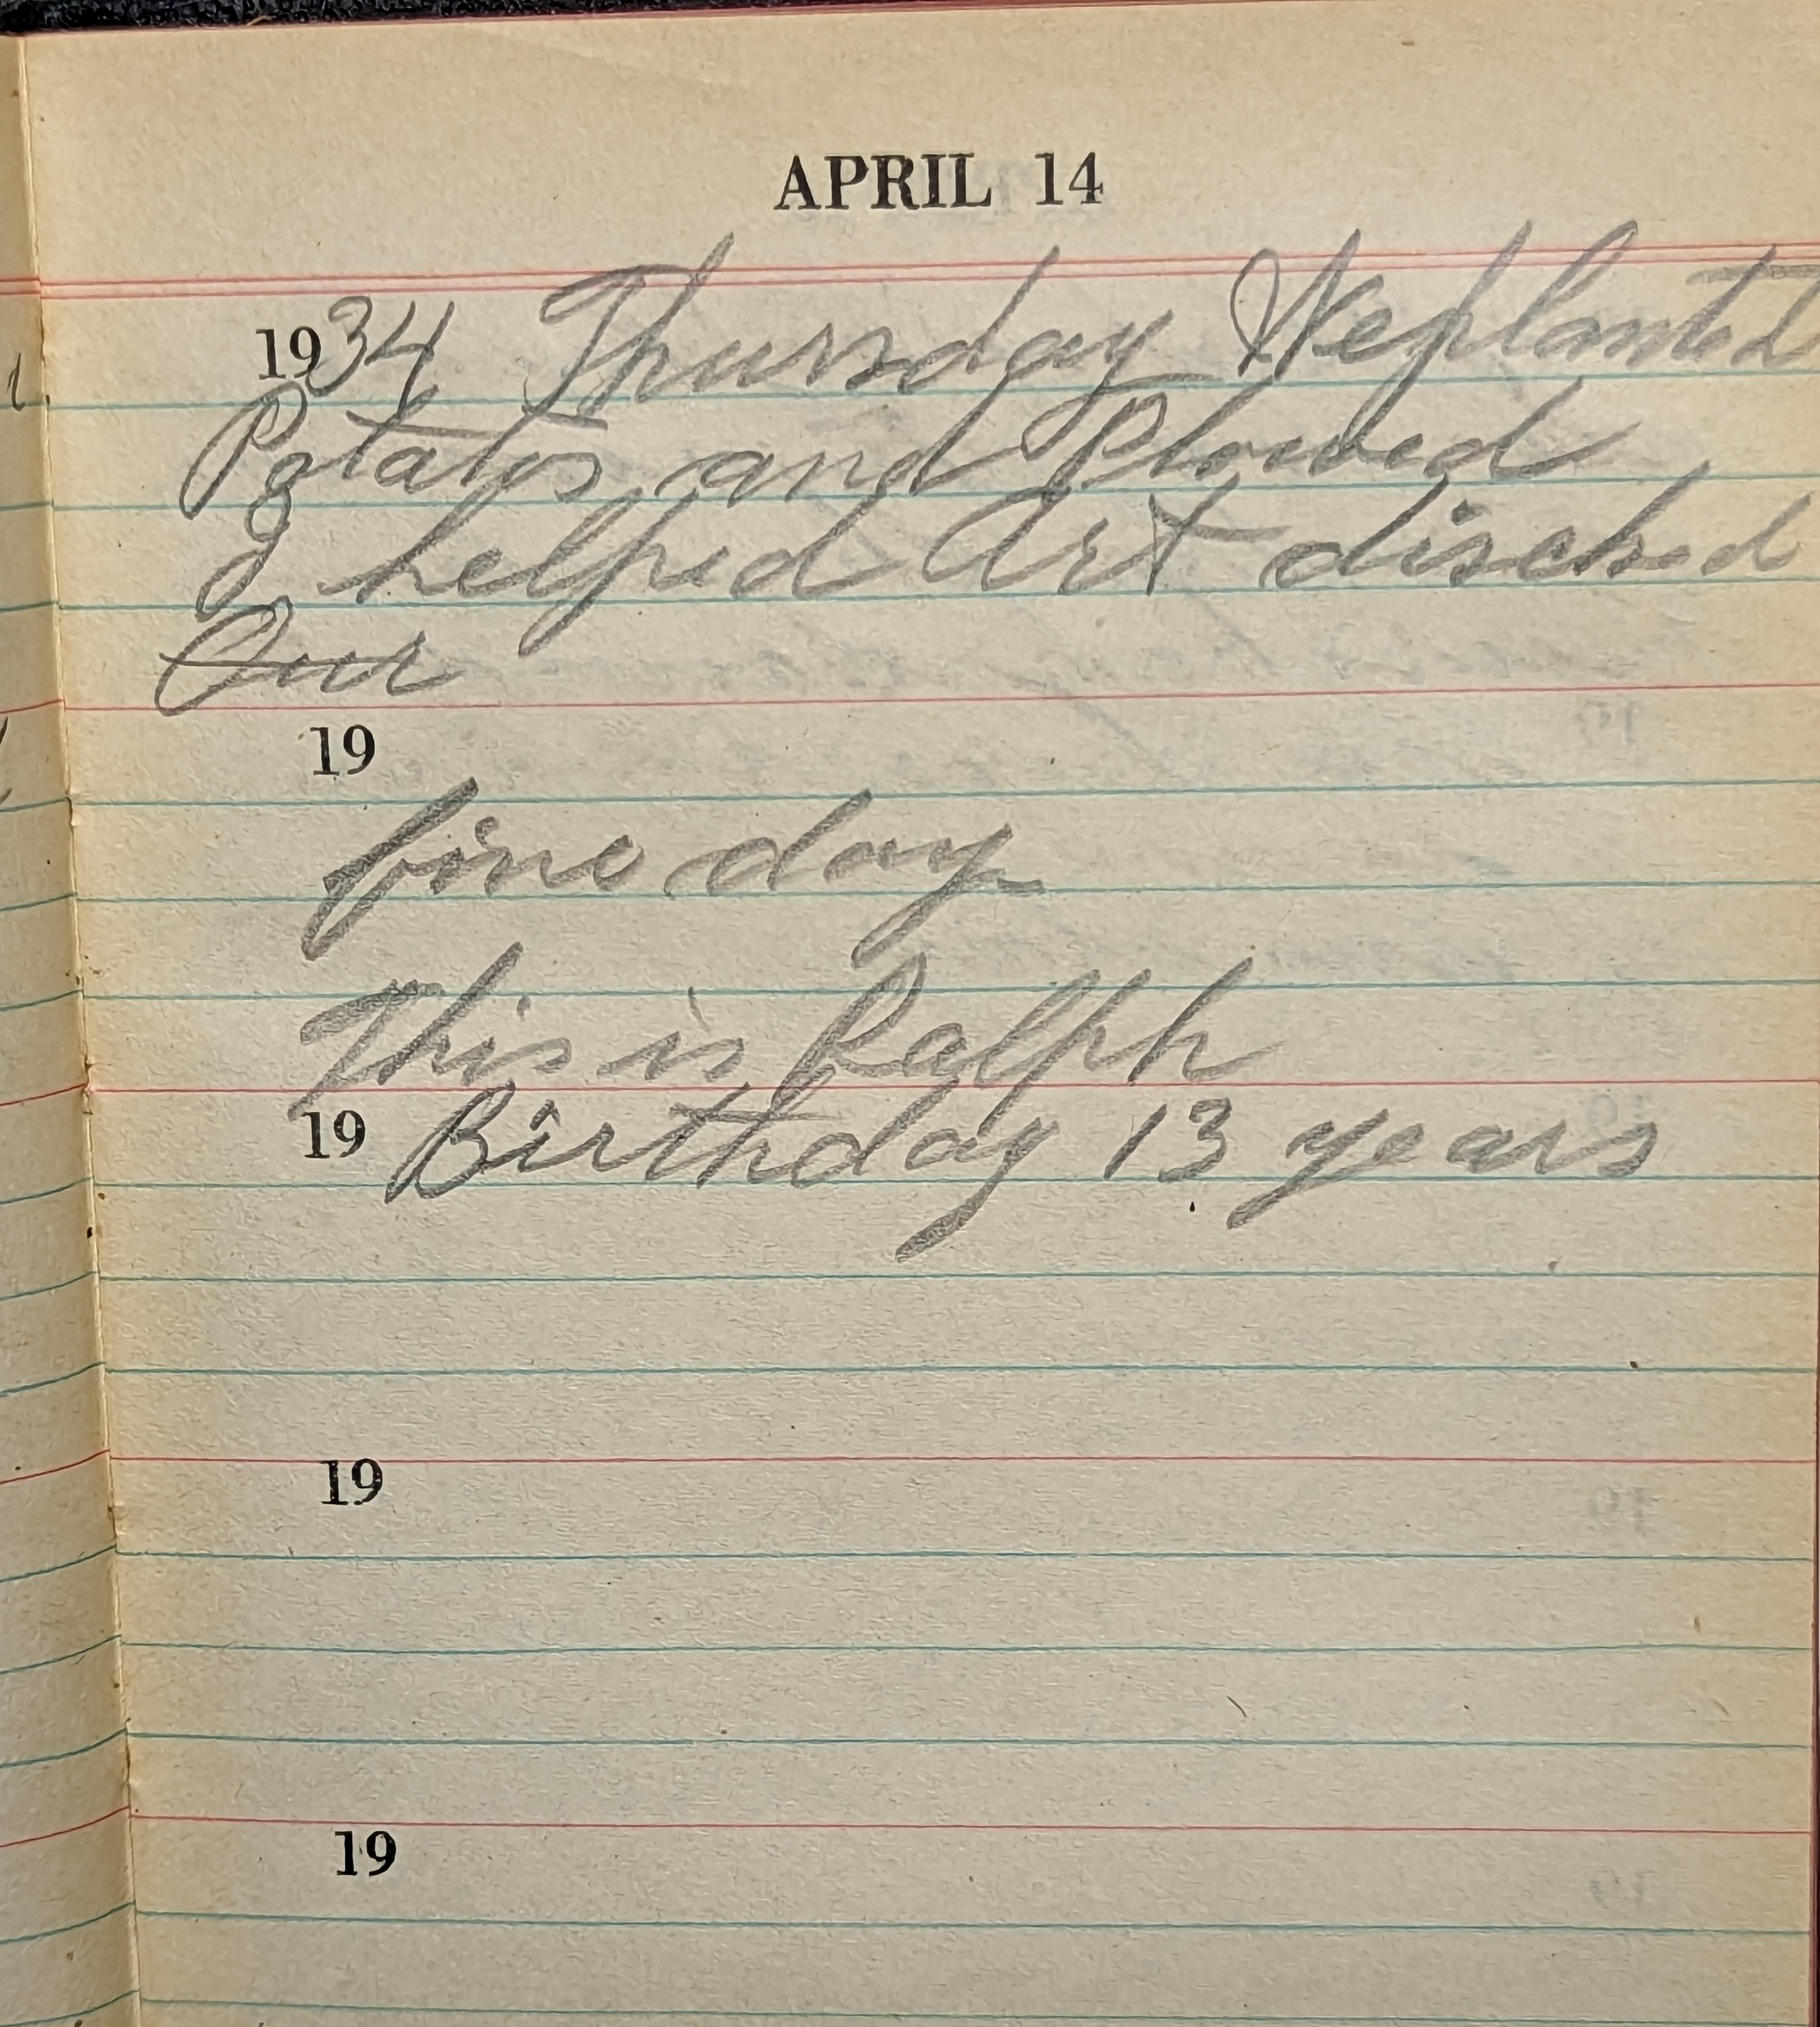 APRIL 14
1934 Thursday We planted
Potatos and Plowed
I helped Art disched
Our
19
fine day
This is Ralph
19 Birthday 13 years
19
19